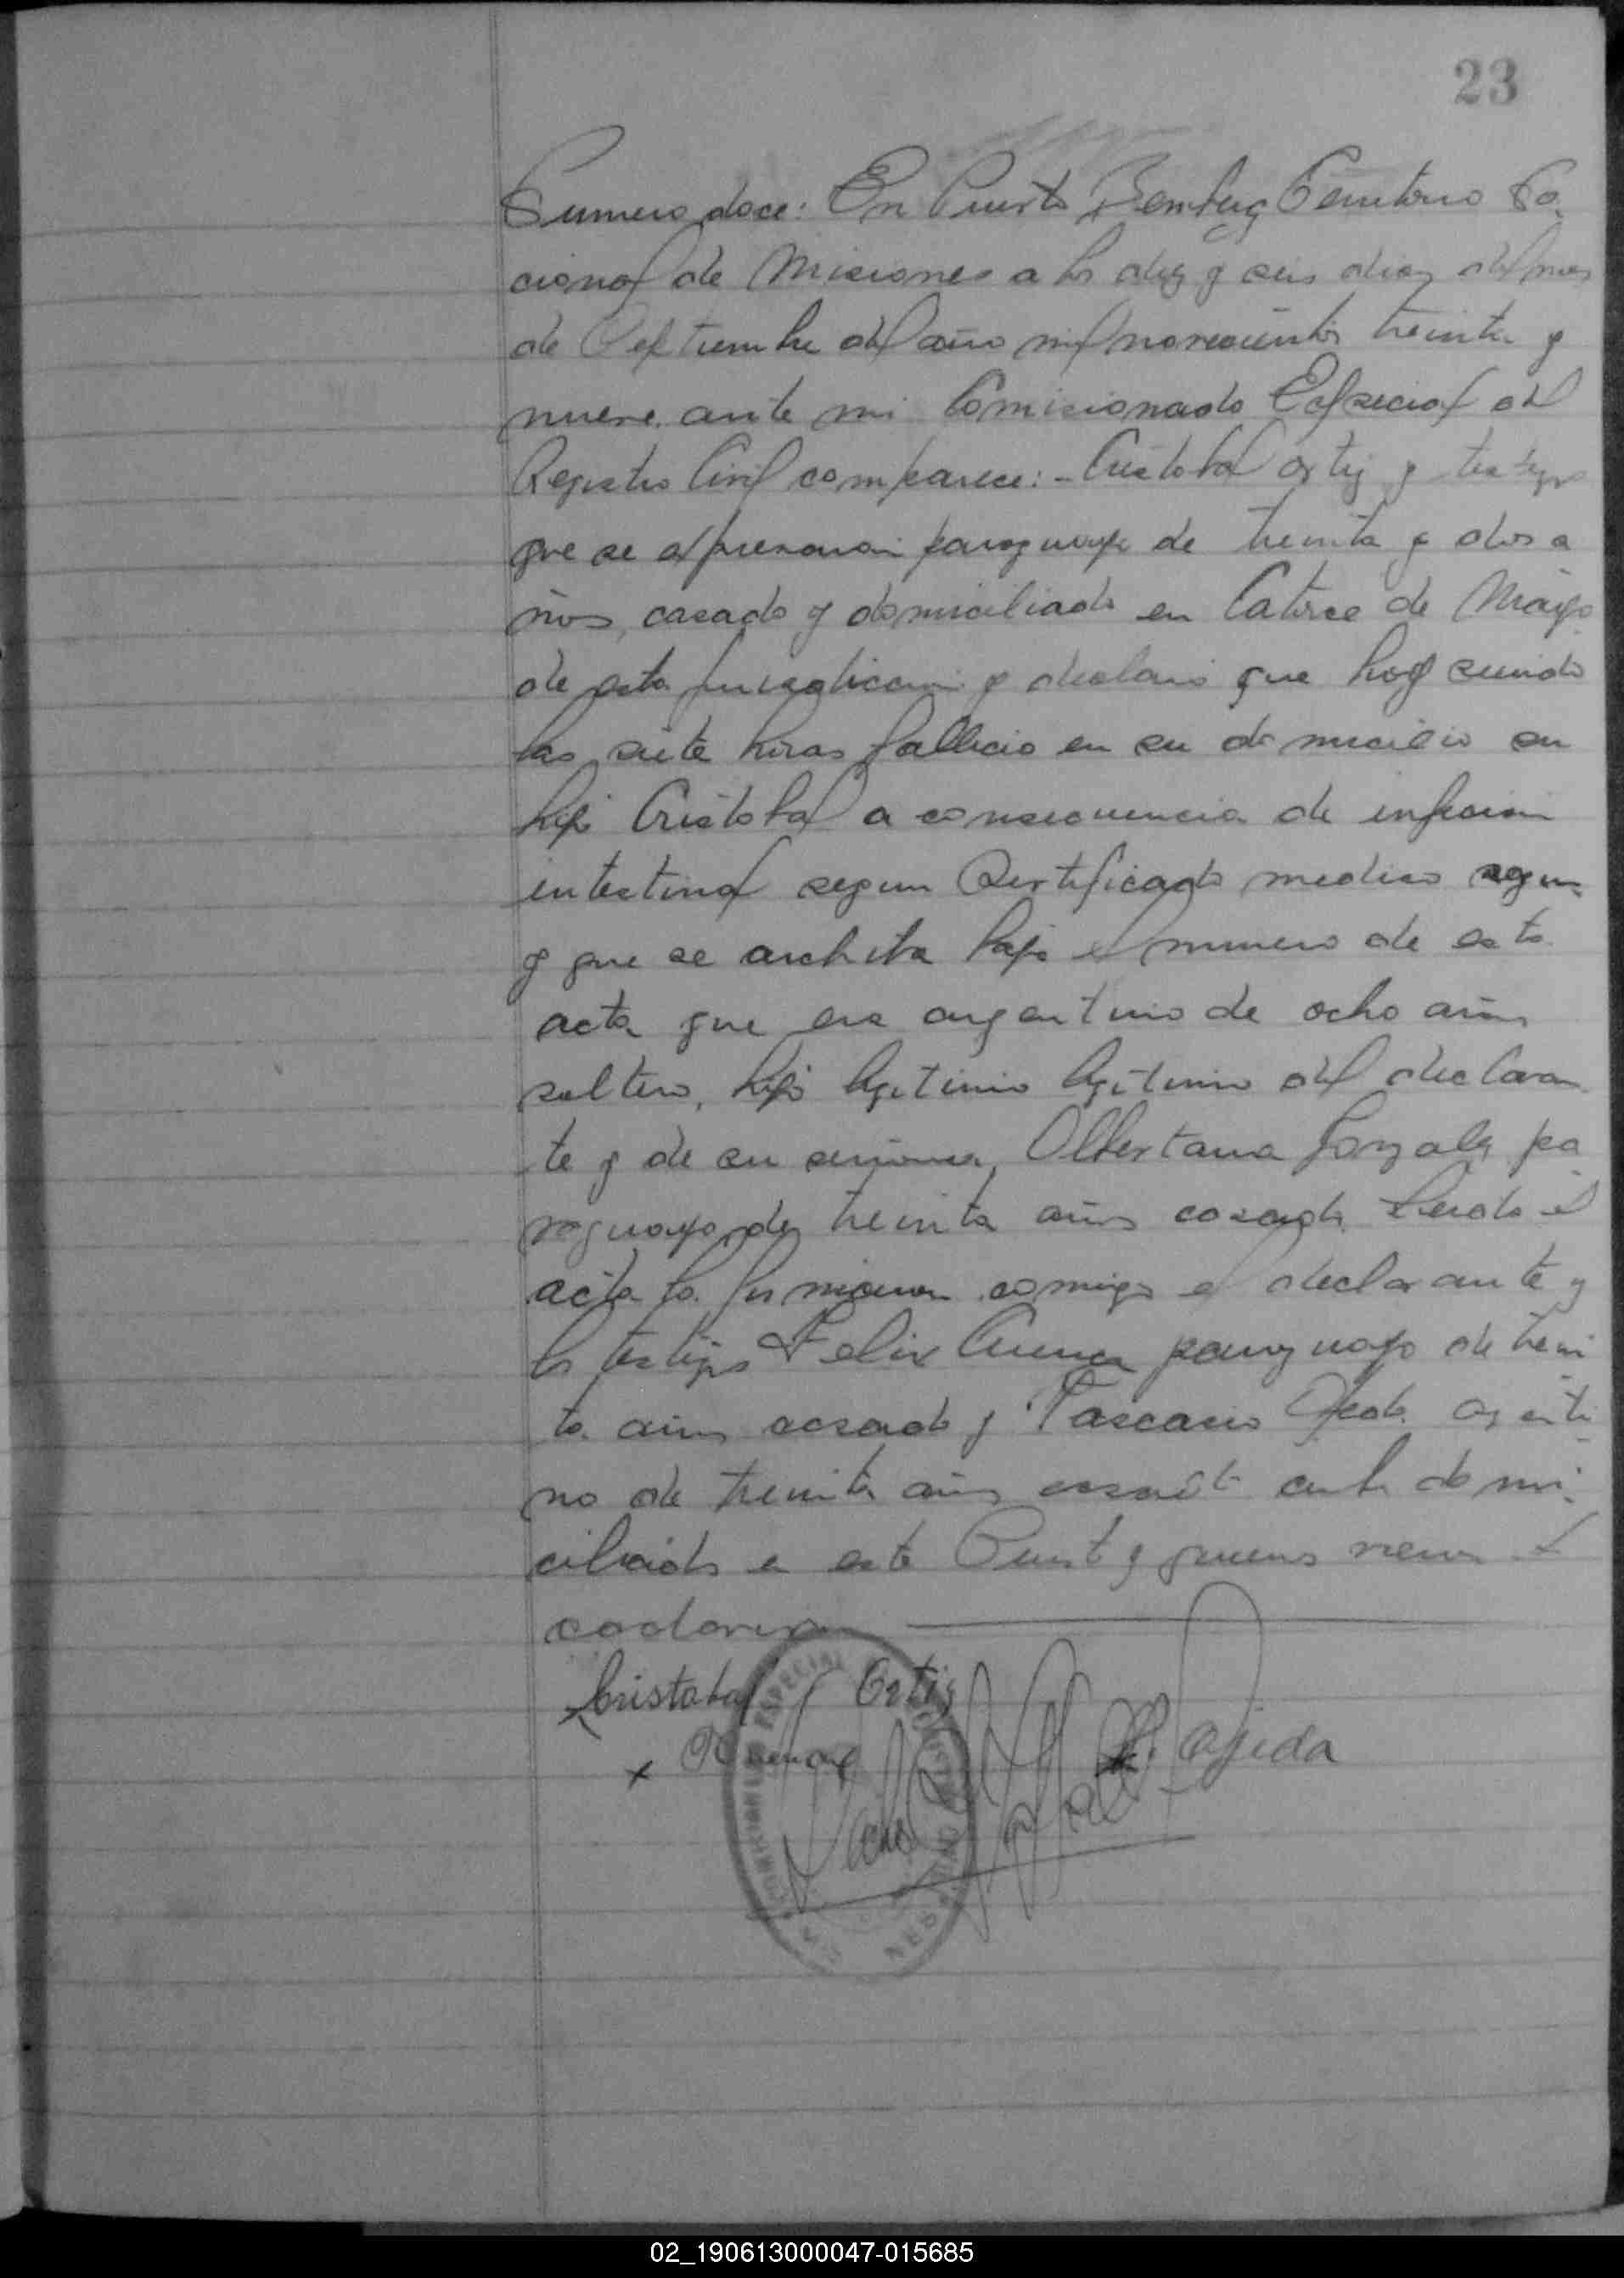 23
Numero doce: En Puerto Bemberg Territorio Na
cional de Misiones a los diez y seis dias del mes
de Septiembre del año mil novecientos treinta y
nueve. ante mi Comisionado Especial del
Registro Civil comparece: - Cristobal Ortiz y testigos
que se expresaran paraguayo de treinta y dos a
ños, casado y domiciliado en Catorce de Mayo
de esta jurisdiccion y declaro que hoy siendo
las siete horas fallecio en su domicilio su
hijo Cristobal a consecuencia de infecion
intestinal segun Certificado medico segun
y que se archiba bajo el numero de esta
acta que era argentino de ocho años
soltero, hijo legitimo legitimo del declaran
te y de su señora, Albertana Gonzalez pa
raguaya, de treinta años casada. Leida el
acta la firmaron comigo el declarante y
los testigos Felix Cuenca paraguayo de trein
ta años casado y Pascacio Ojeda argenti
no de treinta años casado ambos domi
ciliados en este Puerto y quienes vieron el
cadaver
Cristobal Ortiz
x
Ojeda
COMISIONES ESPECIAL
02_190613000047-015685